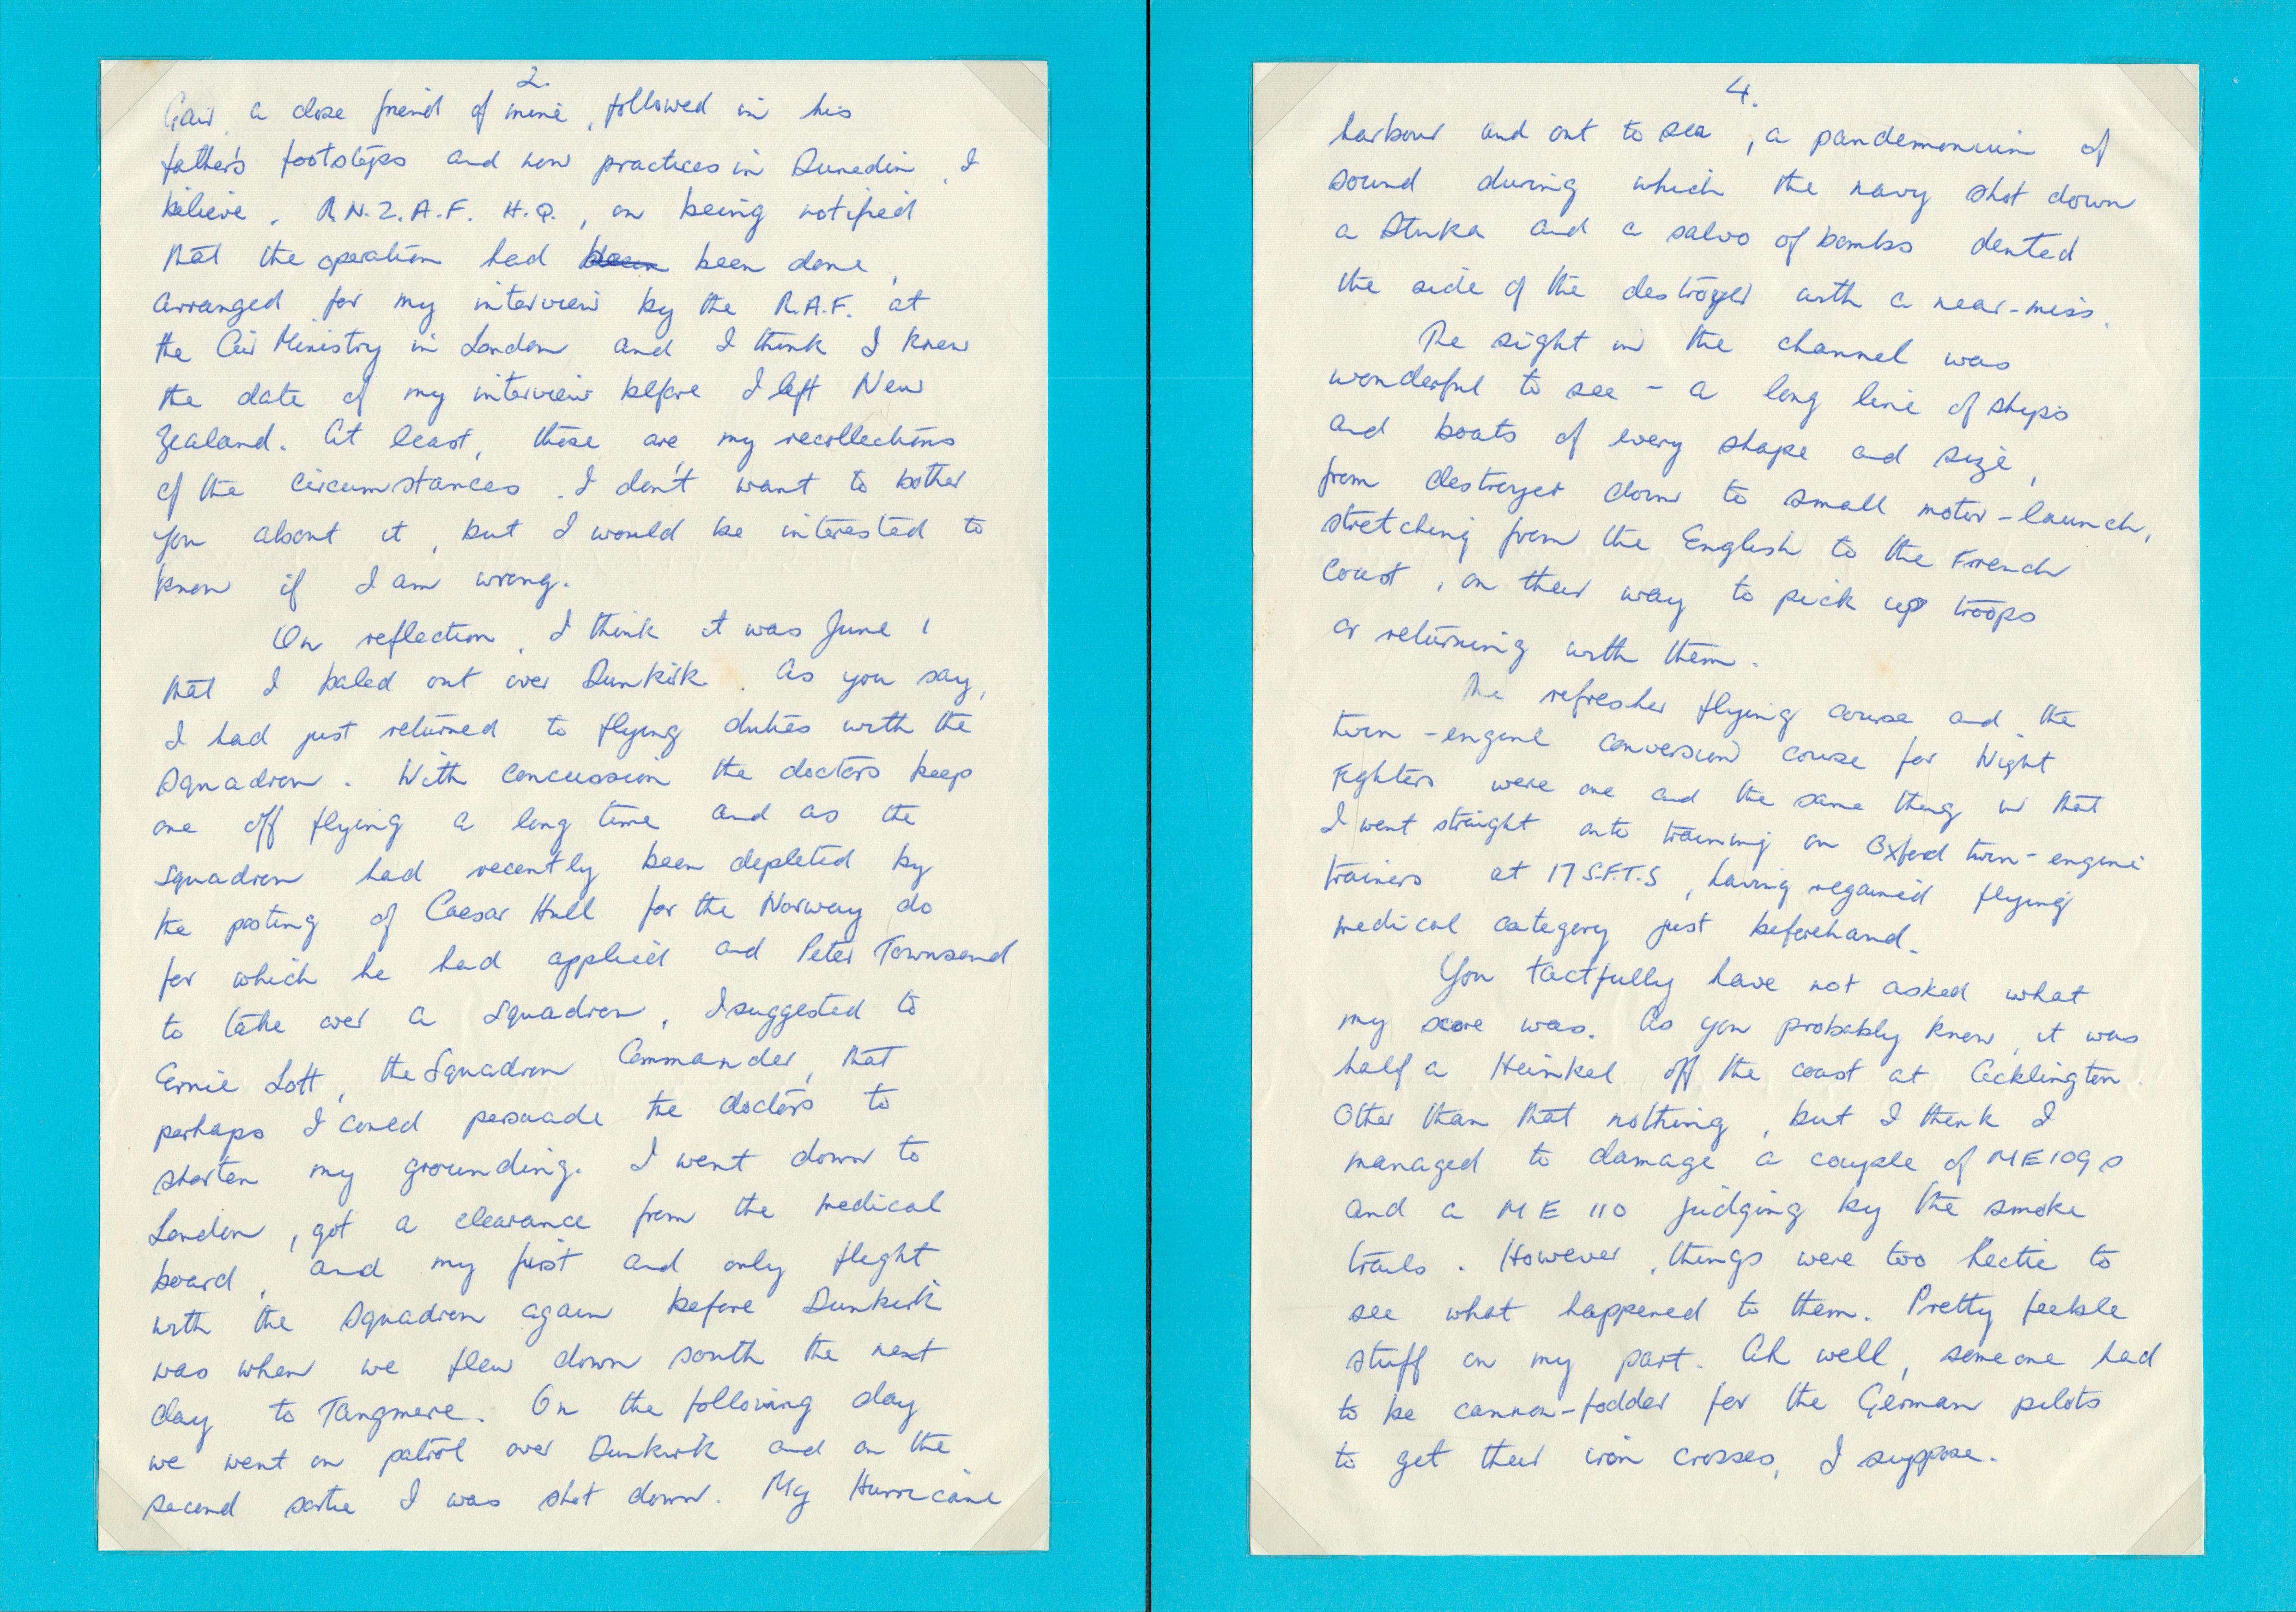 2.
Gair, a close friend of mine, followed in his
father's footsteps and now practices in Dunedin, I
believe. R.N.Z.A.F. H.Q., on being notified
that the operation had been been done,
arranged for my interview by the R.A.F. at
the Air Ministry in London and I think I knew
the date of my interview before I left New
Zealand. At least, these are my recollections
of the circumstances. I don't want to bother
you about it, but I would be interested to
know if I am wrong.
On reflection, I think it was June 1
that I baled out over Dunkirk. As you say,
I had just returned to flying duties with the
Squadron. With concussion the doctors keep
one off flying a long time and as the
squadron had recently been depleted by
the posting of Caesar Hull for the Norway do
for which he had applied and Peter Townsend
to take over a squadron, I suggested to
Ernie Lott, the Squadron Commander, that
perhaps I could persuade the doctors to
shorten my grounding. I went down to
London, got a clearance from the medical
board, and my first and only flight
with the Squadron again before Dunkirk
was when we flew down south the next
day to Tangmere. On the following day
we went on patrol over Dunkirk and on the
second sortie I was shot down. My Hurricane
4.
harbour and out to sea, a pandemonium of
sound during which the navy shot down
a Stuka and a salvo of bombs dented
the side of the destroyer with a near-miss.
The sight in the channel was
wonderful to see - a long line of ships
and boats of every shape and size,
from destroyer down to small motor-launch,
stretching from the English to the French
coast, on their way to pick up troops
or returning with them.
The refresher flying course and the
twin-engine conversion course for Night
Fighters were one and the same thing in that
I went straight onto training on Oxford twin-engine
trainers at 17 S.F.T.S, having regained flying
medical category just beforehand.
You tactfully have not asked what
my score was. As you probably know, it was
half a Heinkel off the coast at Acklington.
Other than that nothing, but I think I
managed to damage a couple of ME109s
and a ME 110 judging by the smoke
trails. However, things were too hectic to
see what happened to them. Pretty feeble
stuff on my part. Ah well, someone had
to be cannon-fodder for the German pilots
to get their iron crosses, I suppose.